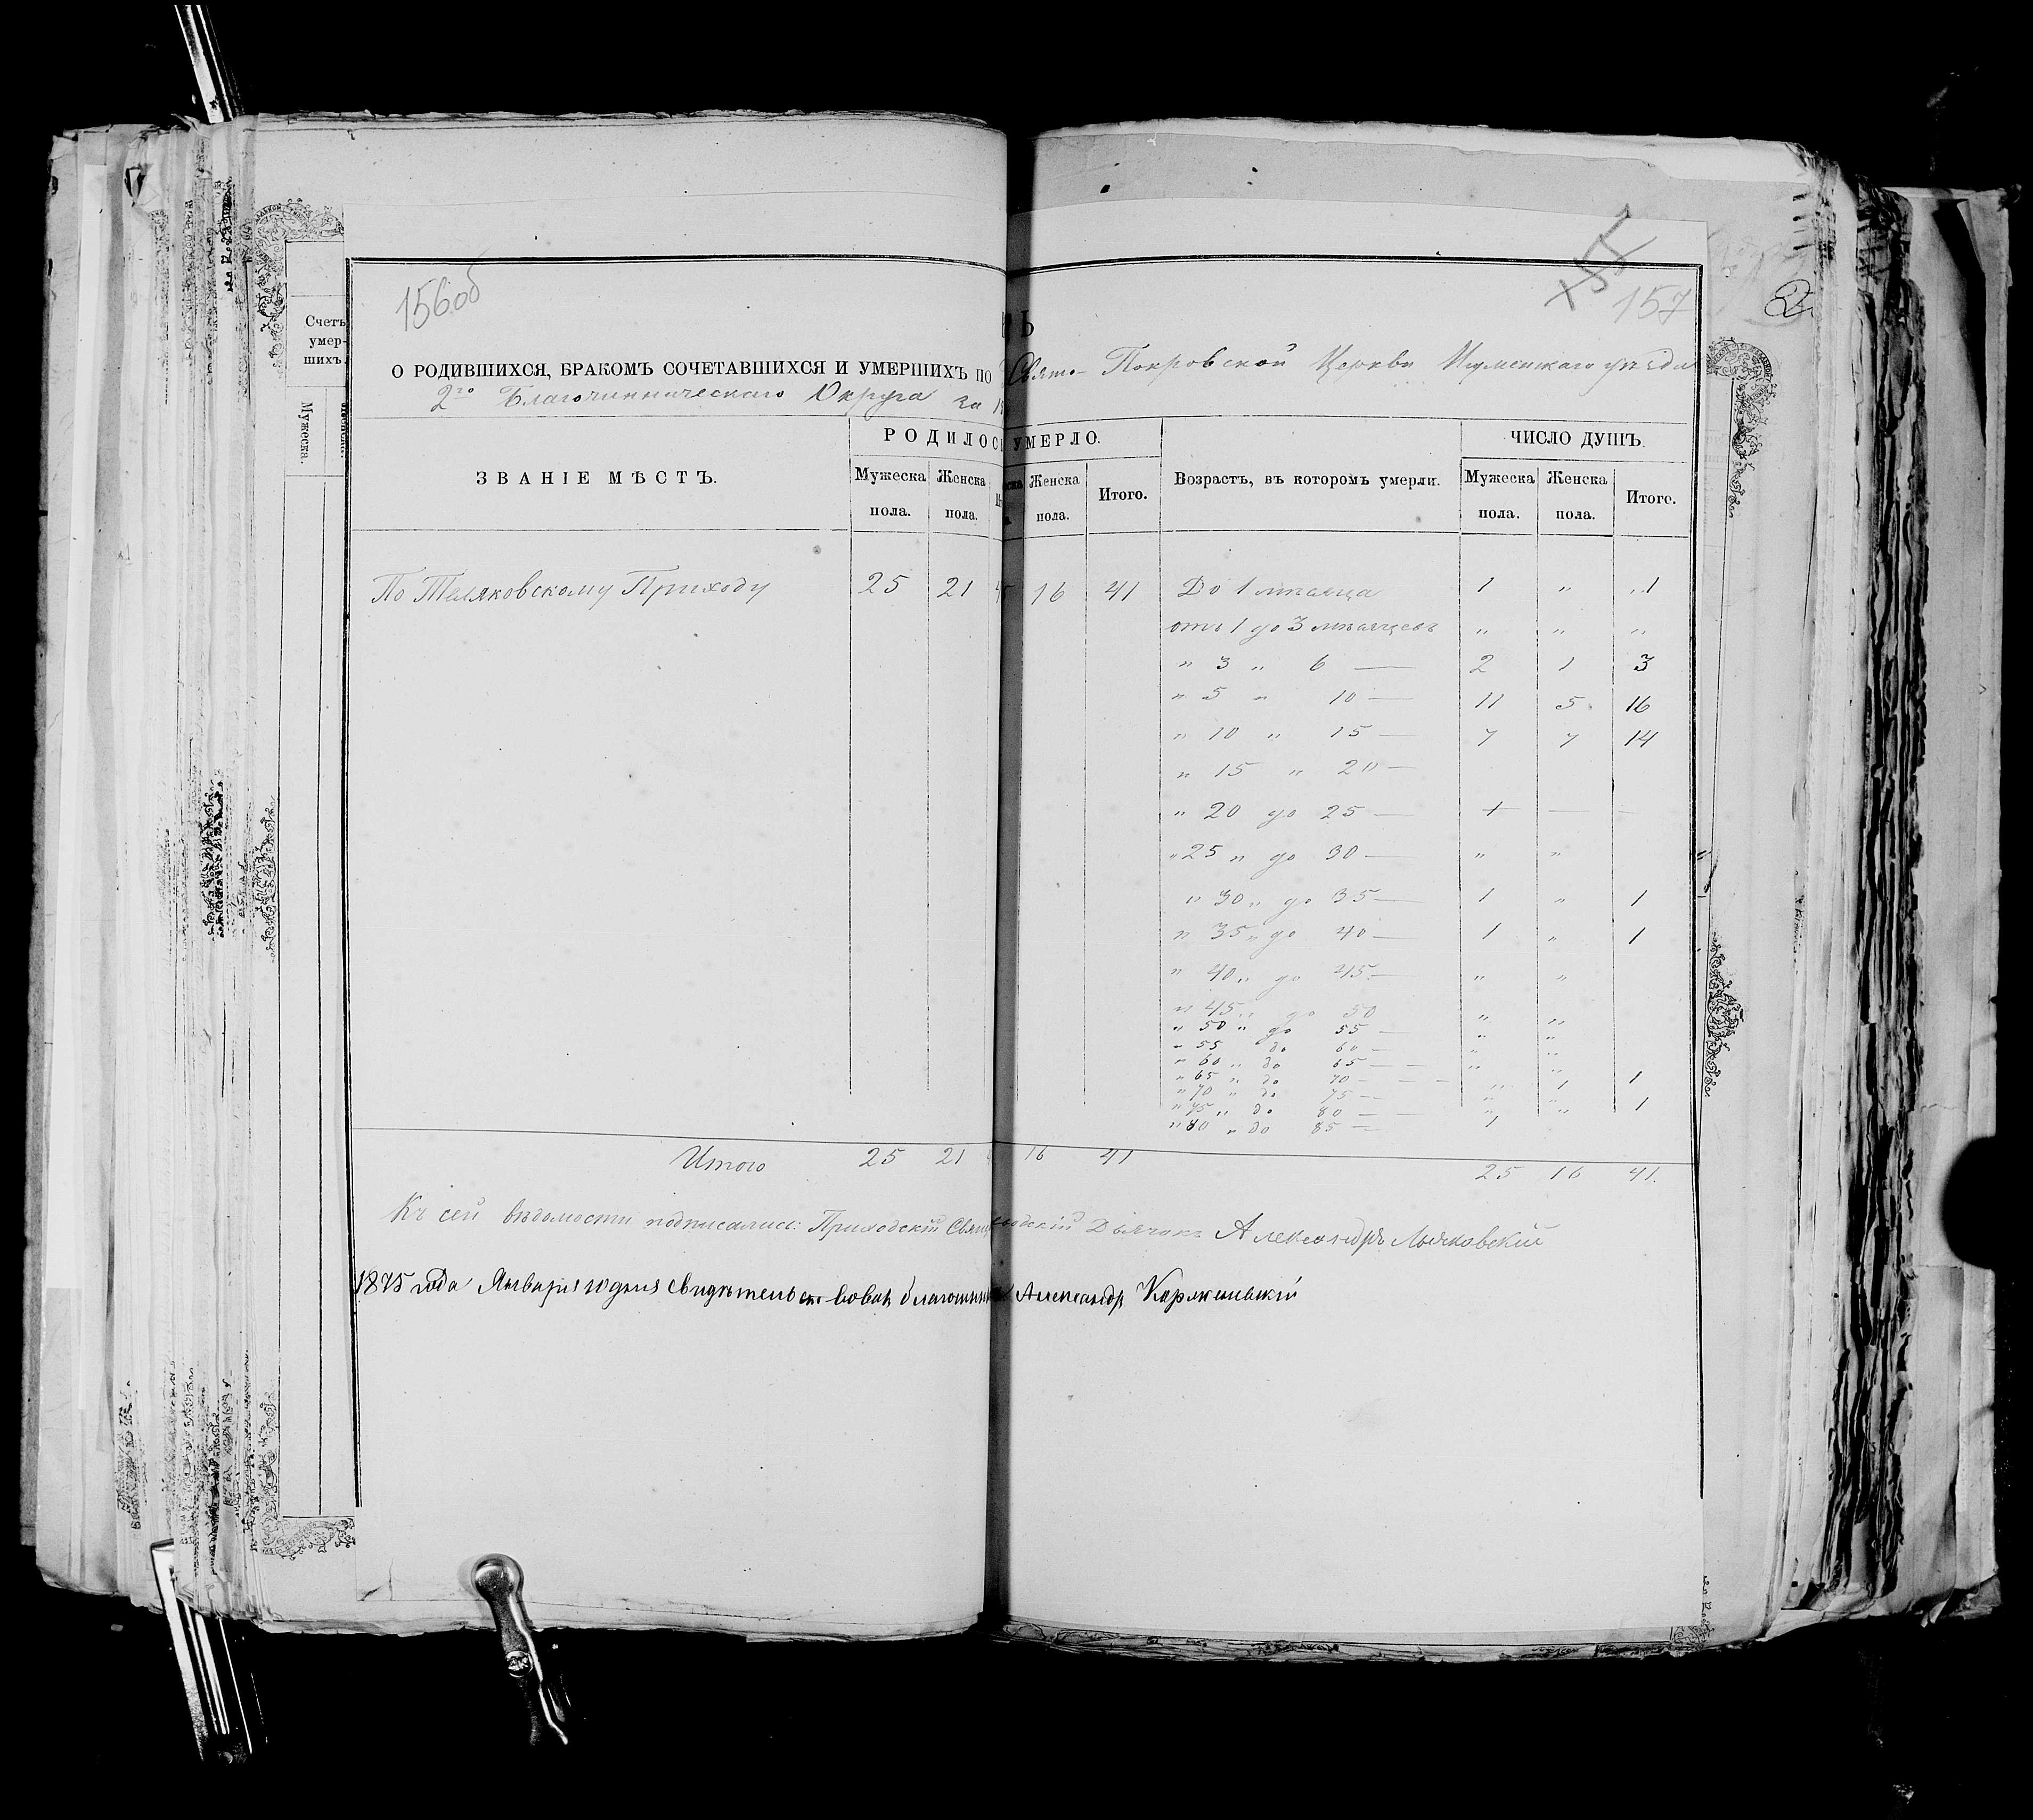 156об
157
2
Счетъ умер-шихъ.
Мужеска.
О РОДИВШИХСЯ, БРАКОМЪ СОЧЕТАВШИХСЯ И УМЕРШИХЪ ПО Свято- Покровской Церкви Игуменскаго уѣзда
2го Благочинническаго Округа за
ЗВАНІЕ МѢСТЪ. РОДИЛОС УМЕРЛО. Возрастъ, въ которомъ умерли. ЧИСЛО ДУШЪ.
Мужеска пола. Женска пола. Женска пола. Итого. Мужеска пола. Женска пола. Итого.
По Теляковскому Приходу 25 21 16 41 До 1 мѣсяца 1 " 1
отъ 1 до 3 мѣсяцевъ " " "
" 3 " 6 — 2 1 3
" 5 " 10 — 11 5 16
" 10 " 15 — 7 7 14
" 15 " 20 —
" 20 до 25 — + — —
" 25 " до 30 — " "
" 30 " до 35 — 1 " 1
" 35 " до 40 — 1 " 1
" 40 " до 45 — " "
" 45 " до 50 " "
" 50 " до 55 — " "
" 55 до 60 — " "
" 60 " до 65 — " "
" 65 " до 70 — " 1 1
" 70 " до 75 — " "
" 75 " до 80 — " " 1
" 80 " до 85 — 1
Итого 25 21 16 41 25 16 41.
Къ сей вѣдомости подписались: Приходскій Свящ Дьячокъ Александръ
1875 года Января 10 дня Свидѣтельствовалъ благочинный Александръ